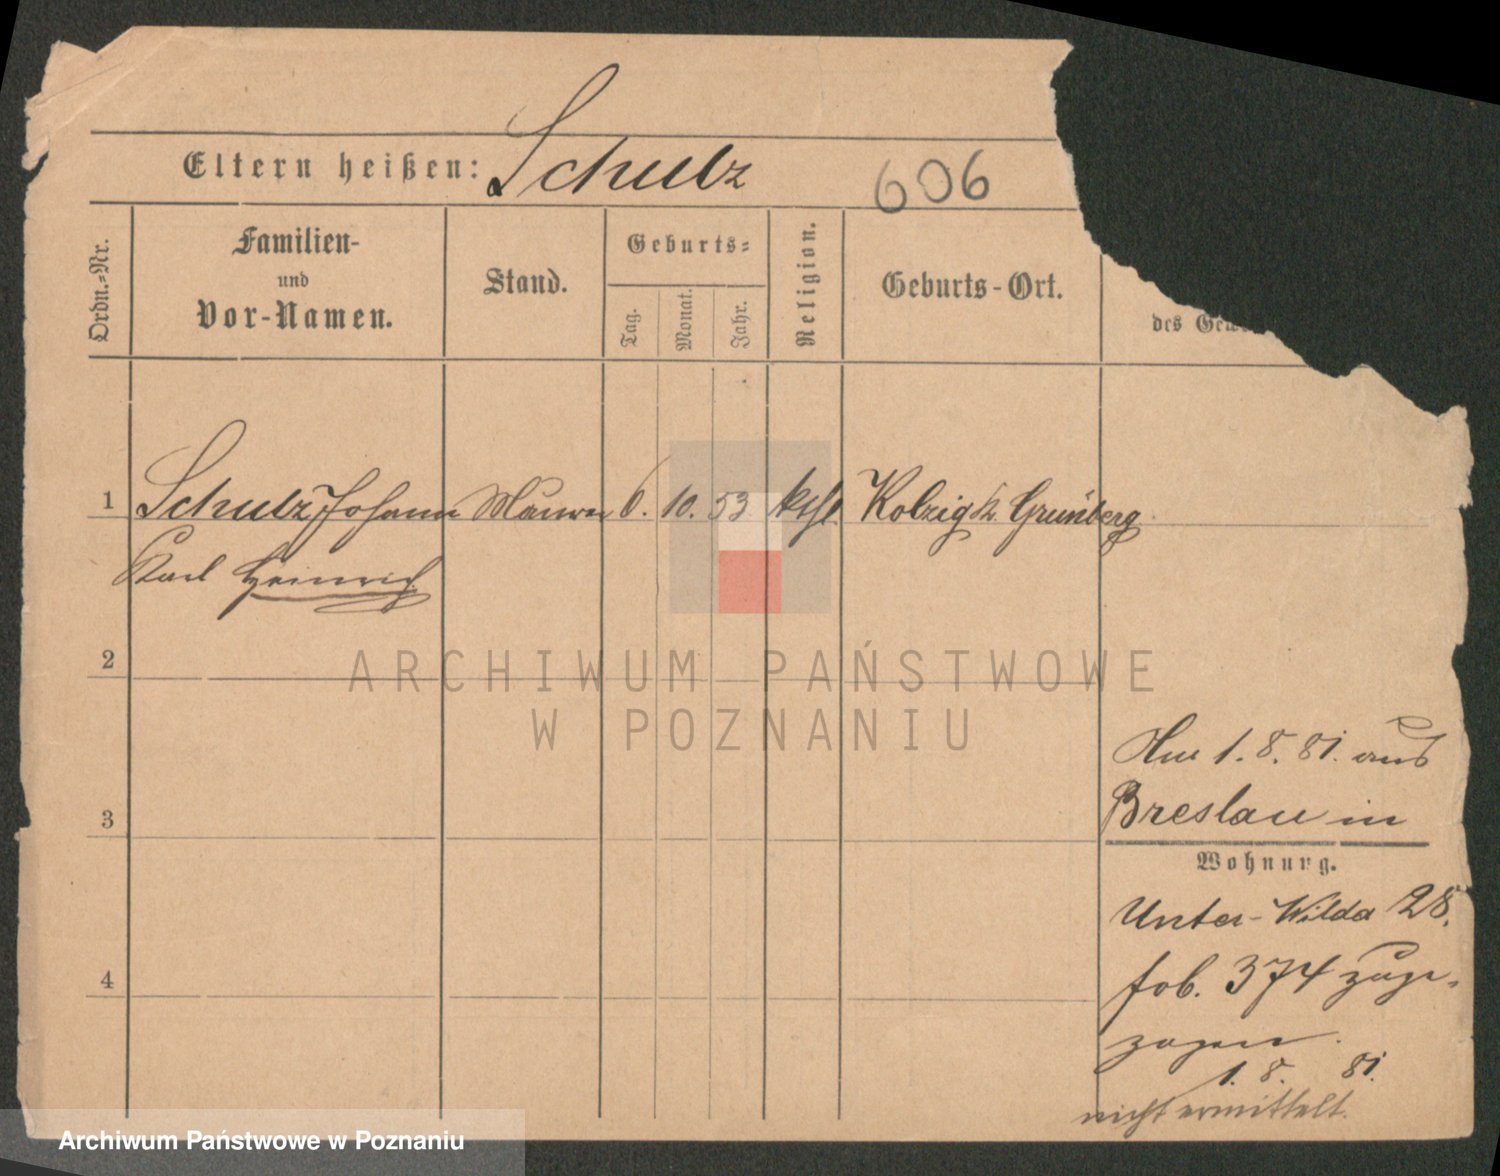 Eltern heißen: Schulz
606
Ordn.-Nr.
Familien-
und
Vor-Namen.
Stand.
Geburts-
Tag.
Monat.
Jahr.
Religion.
Geburts-Ort.
des
1 Schulz Johann Maurer 6. 10. 53 kthl. Kolzig Kr. Grünberg
Karl Heinrich
2
3
4
Am 1. 8. 81. aus
Breslau in
Wohnung.
Unter-Wilda 28.
fob. 374 zuge-
zogen.
1. 8. 81.
nicht ermittelt.
ARCHIWUM PAŃSTWOWE
W POZNANIU
Archiwum Państwowe w Poznaniu